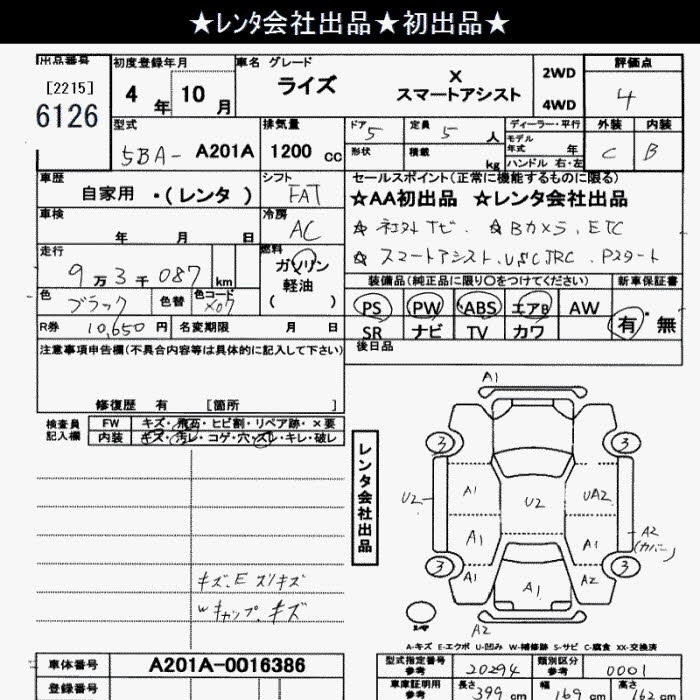 ★レンタ会社出品★初出品★
出品番号 初度登録年月 車名 グレード 評価点
[2215]
6126
4 年 10 月
ライズ
X
スマートアシスト
2WD
4WD
4
型式 排気量 ドア 5 定員 5 人 ディーラー・平行 外装 内装
5BA- A201A 1200 cc
形状 積載 kg モデル年式 年 ハンドル 右・左 C B
車歴 シフト セールスポイント(正常に機能するものに限る)
自家用 ・(レンタ) FAT
★AA初出品 ★レンタ会社出品
車検 年 月 日 冷房 AC
☆ ネコストTビ、☆Bカメラ、ETC
☆ スマートアシスト、USCJRC、Pスタート
走行 9 万 3 千 087 km
燃料 ガソリン
軽油
( )
装備品(純正品に限り○をつけてください) 新車保証書
色 ブラック 色替 色コード X07
PS PW ABS エアB AW 有・無
SR ナビ TV カワ
R券 10,650 円 名変期限 月 日
注意事項申告欄(不具合内容等は具体的に記入して下さい) 後日品
修復歴 有 [箇所 ]
検査員記入欄 FW キズ・飛石・ヒビ割・リペア跡・×要
内装 キズ・汚レ・コゲ・穴・スレ・キレ・破レ
レンタ会社出品
A1
3 3
U2 A1 U2 UA2
A1 A1 A2
(カバー)
3 3
A1 A1 A2
A2
キズ、E スリキズ
Wキャップ、キズ
A-キズ E-エクボ U-凹み W-補修跡 S-サビ C-腐食 XX-交換済
車体番号 A201A-0016386
登録番号
型式指定番号 参考 20294 類別区分 参考 0001
車庫証明用 参考 長さ 399 cm 幅 169 cm 高さ 162 cm